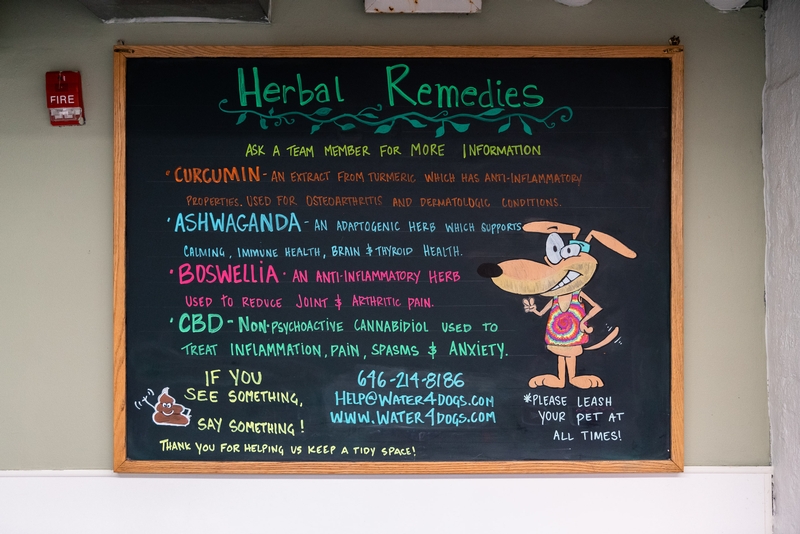 FIRE
Herbal Remedies
ASK A TEAM MEMBER FOR MORE INFORMATION
·CURCUMIN - AN EXTRACT FROM TURMERIC WHICH HAS ANTI-INFLAMMATORY
PROPERTIES. USED FOR OSTEOARTHRITIS AND DERMATOLOGIC CONDITIONS.
·ASHWAGANDA - AN ADAPTOGENIC HERB WHICH SUPPORTS
CALMING, IMMUNE HEALTH, BRAIN & THYROID HEALTH.
·BOSWELLIA · AN ANTI-INFLAMMATORY HERB
USED TO REDUCE JOINT & ARTHRITIC PAIN.
·CBD - NON-PSYCHOACTIVE CANNABIDIOL USED TO
TREAT INFLAMMATION, PAIN, SPASMS & ANXIETY.
IF YOU
SEE SOMETHING,
SAY SOMETHING!
THANK YOU FOR HELPING US KEEP A TIDY SPACE!
646-214-8186
HELP@WATER4DOGS.COM
WWW.WATER4DOGS.COM
*PLEASE LEASH
YOUR PET AT
ALL TIMES!